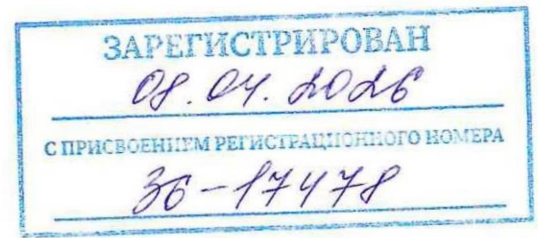 ЗАРЕГИСТРИРОВАН
08.04.2026
С ПРИСВОЕНИЕМ РЕГИСТРАЦИОННОГО НОМЕРА
36-17478